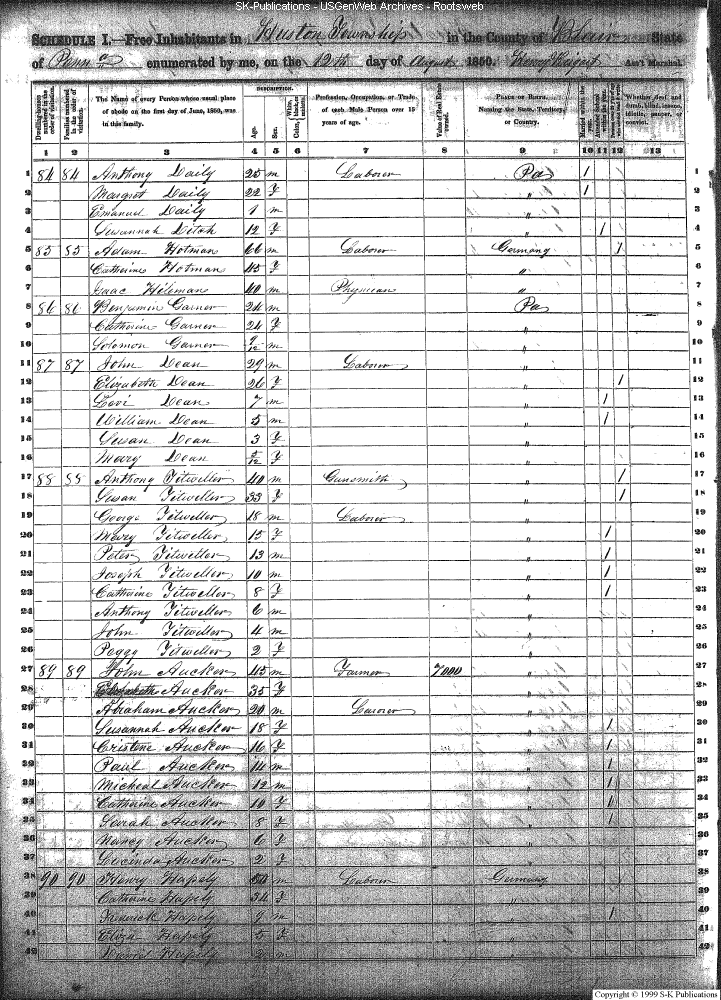 SK-Publications - USGenWeb Archives - Rootsweb
SCHEDULE I.—Free Inhabitants in Huston Township in the County of Blair State
of Penna enumerated by me, on the 12th day of August 1850. Ass't Marshal.
DESCRIPTION.
Dwelling-houses numbered in the order of visitation.
Families numbered in the order of visitation.
The Name of every Person whose usual place of abode on the first day of June, 1850, was in this family.
Age.
Sex.
Color White, black, or mulatto.
Profession, Occupation, or Trade of each Male Person over 15 years of age.
Value of Real Estate owned.
PLACE OF BIRTH. Naming the State, Territory, or Country.
Married within the year.
Attended School within the year.
Whether deaf and dumb, blind, insane, idiotic, pauper, or convict.
1 2 3 4 5 6 7 8 9 10 11 12 13
1 84 84 Anthony Daily 25 m Laborer Pa / 1
2 Margret Daily 22 F " / 2
3 Emanuel Daily 1 m " 3
4 Susannah Ditch 12 F " / 4
5 85 85 Adam Hotman 66 m Laborer Germany / 5
6 Catherine Hotman 45 F " 6
7 Isaac Hileman 40 m Physician 7
8 86 86 Benjamin Garner 24 m Pa 8
9 Catherine Garner 24 F " 9
10 Solomon Garner m " 10
11 87 87 John Dean 29 m Laborer " 11
12 Elizabeth Dean 26 F " / 12
13 Levi Dean 7 m " / 13
14 William Dean 5 m " / 14
15 Susan Dean 3 F " 15
16 Mary Dean F " 16
17 88 88 Anthony Titweller 40 m Gunsmith " / 17
18 Susan Titweller 33 F " / 18
19 George Titweller 18 m Laborer " 19
20 Mary Titweller 15 F " / 20
21 Peter Titweller 13 m " / 21
22 Joseph Titweller 10 m " / 22
23 Catherine Titweller 8 F " / 23
24 Anthony Titweller 6 m " 24
25 John Titweller 4 m " 25
26 Peggy Titweller 2 F " 26
27 89 89 John Aucker 45 m Farmer 7000 " 27
28 Elizabeth Aucker 35 F " 28
29 Abraham Aucker 20 m Laborer " 29
30 Susannah Aucker 18 F " / 30
31 Cristene Aucker 16 F " / 31
32 Paul Aucker 14 m " / 32
33 Micheal Aucker 12 m " / 33
34 Catherine Aucker 10 F " / 34
35 Sarah Aucker 8 F " / 35
36 Nancy Aucker 6 F " 36
37 Lucinda Aucker 2 F " 37
38 90 90 Henry Hapely m Laborer Germany 38
39 Catherine Hapely 34 F " 39
40 Hapely 9 m " / 40
41 Eliza Hapely 5 F " 41
42 Hapely 2 m " 42
Copyright © 1999 S-K Publications